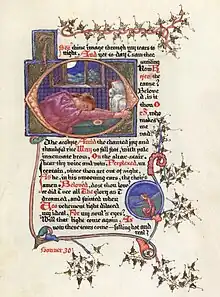 I see thine image through my tears to
night, And yet to-day I saw thee
smiling.
How
the cause?
Beloved,
is it
thou
Or I, who
makes
me sad?
The acolyte Amid the chanted joy and
thankful rite May so fall flat, with pale
insensate brow, On the altar-stair. I
hear thy voice and vow, Perplexed, un
certain, since thou art out of sight,
As he, in his swooning ears, the choir's a
men. Beloved, dost thou love?
or did I see all The glory as I
dreamed, and fainted when
Too vehement light dilated
my ideal, For my soul's eyes?
Will that light come again, As
now these tears come - falling hot and
real
Sonnet 30